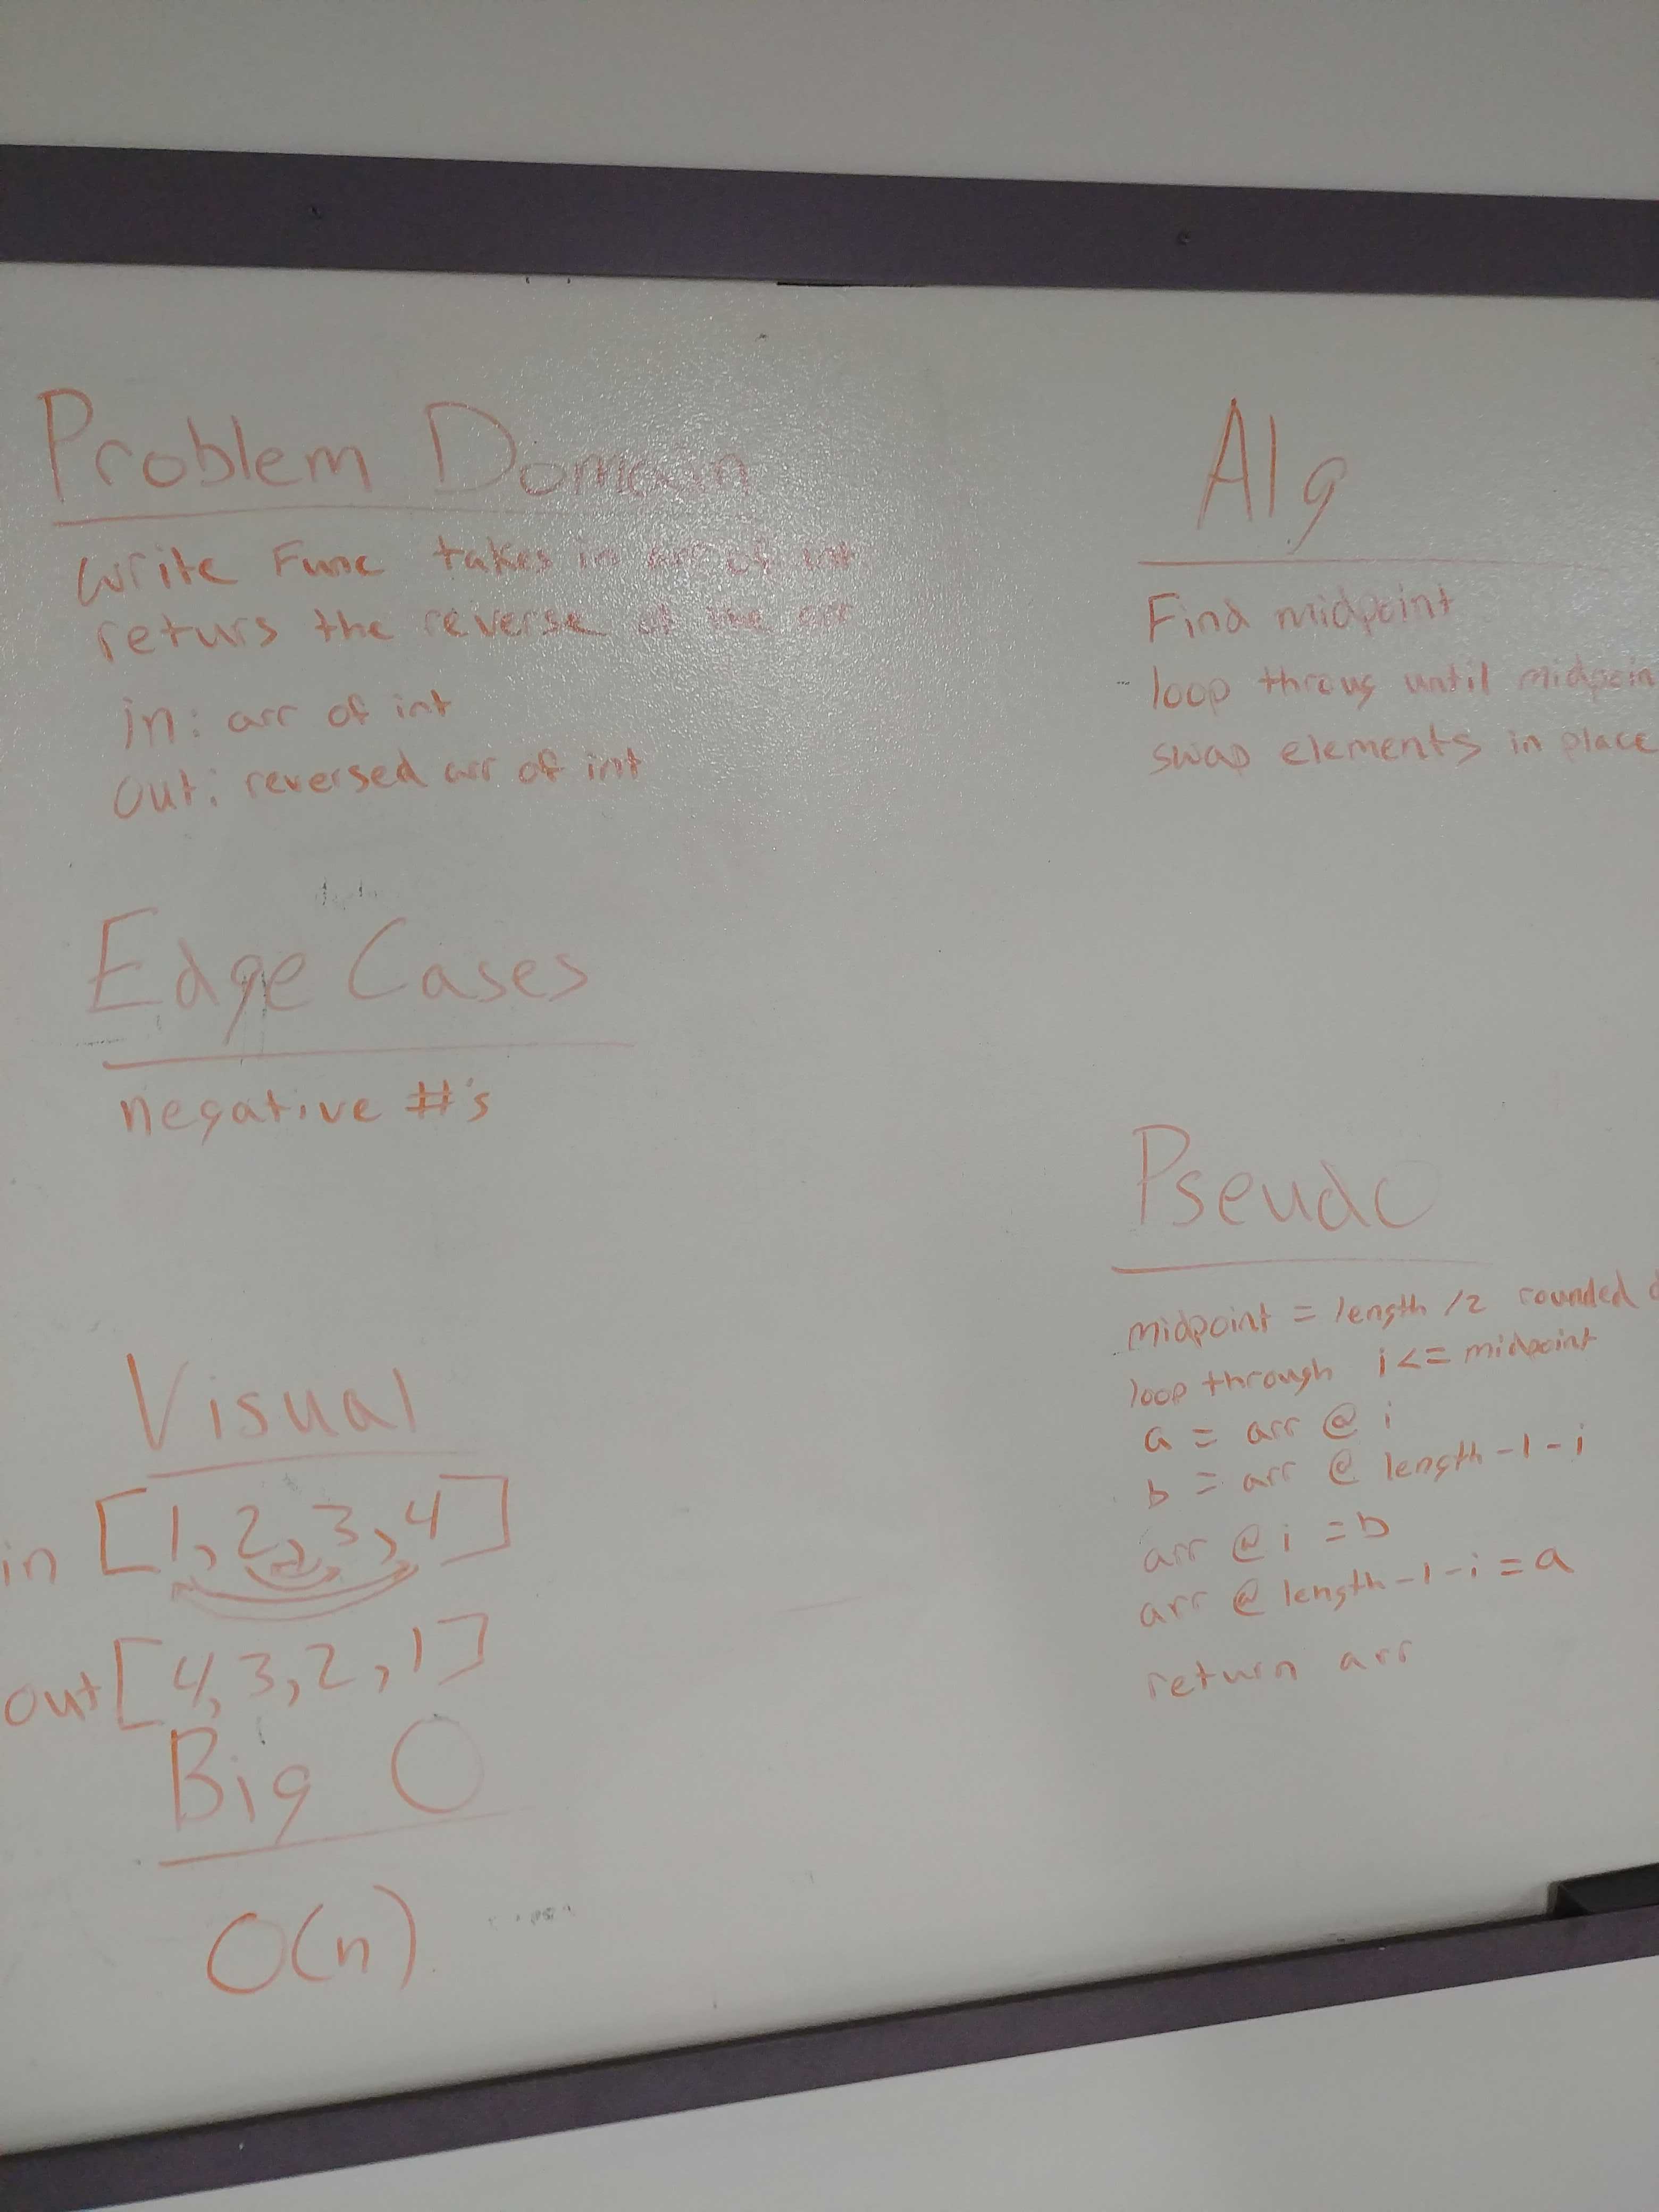 Problem Domain
Write Func takes in arr of int
returs the reverse of the arr
in: arr of int
out: reversed arr of int
Edge Cases
negative #'s
Visual
in [1,2,3,4]
out [4,3,2,1]
Big O
O(n)
Alg
Find midpoint
loop throug until midpoin
swap elements in place
Pseudo
midpoint = length /2 rounded
loop through i <= midpoint
a = arr @ i
b = arr @ length-1-i
arr @ i = b
arr @ length-1-i = a
return arr